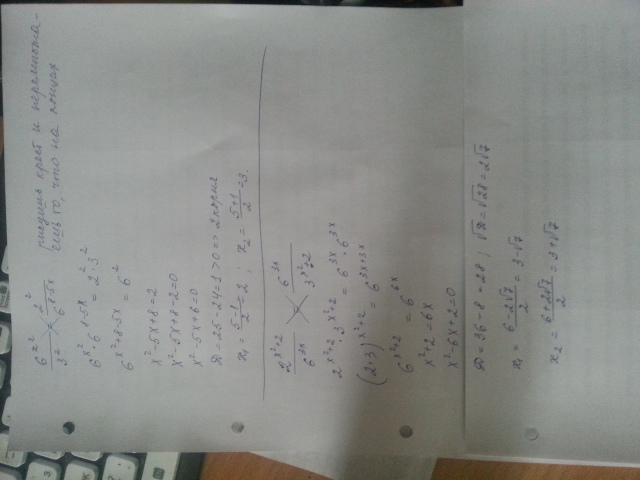 6^{x²}/3² = 2²/6^{8-5x} рисуешь крест и перемножа-
ешь то, что на концах
6^{x²}·6^{8-5x} = 2²·3²
6^{x²+8-5x} = 6²
x²-5x+8=2
x²-5x+8-2=0
x²-5x+6=0
D=25-24=1>0 => 2 корня
x₁ = (5-1)/2 = 2; x₂ = (5+1)/2 = 3.
2^{x²+2}/6^{3x} = 6^{3x}/3^{x²+2}
2^{x²+2}·3^{x²+2} = 6^{3x}·6^{3x}
(2·3)^{x²+2} = 6^{3x+3x}
6^{x²+2} = 6^{6x}
x²+2=6x
x²-6x+2=0
D=36-8=28; √D=√28=2√7
x₁ = (6-2√7)/2 = 3-√7
x₂ = (6+2√7)/2 = 3+√7